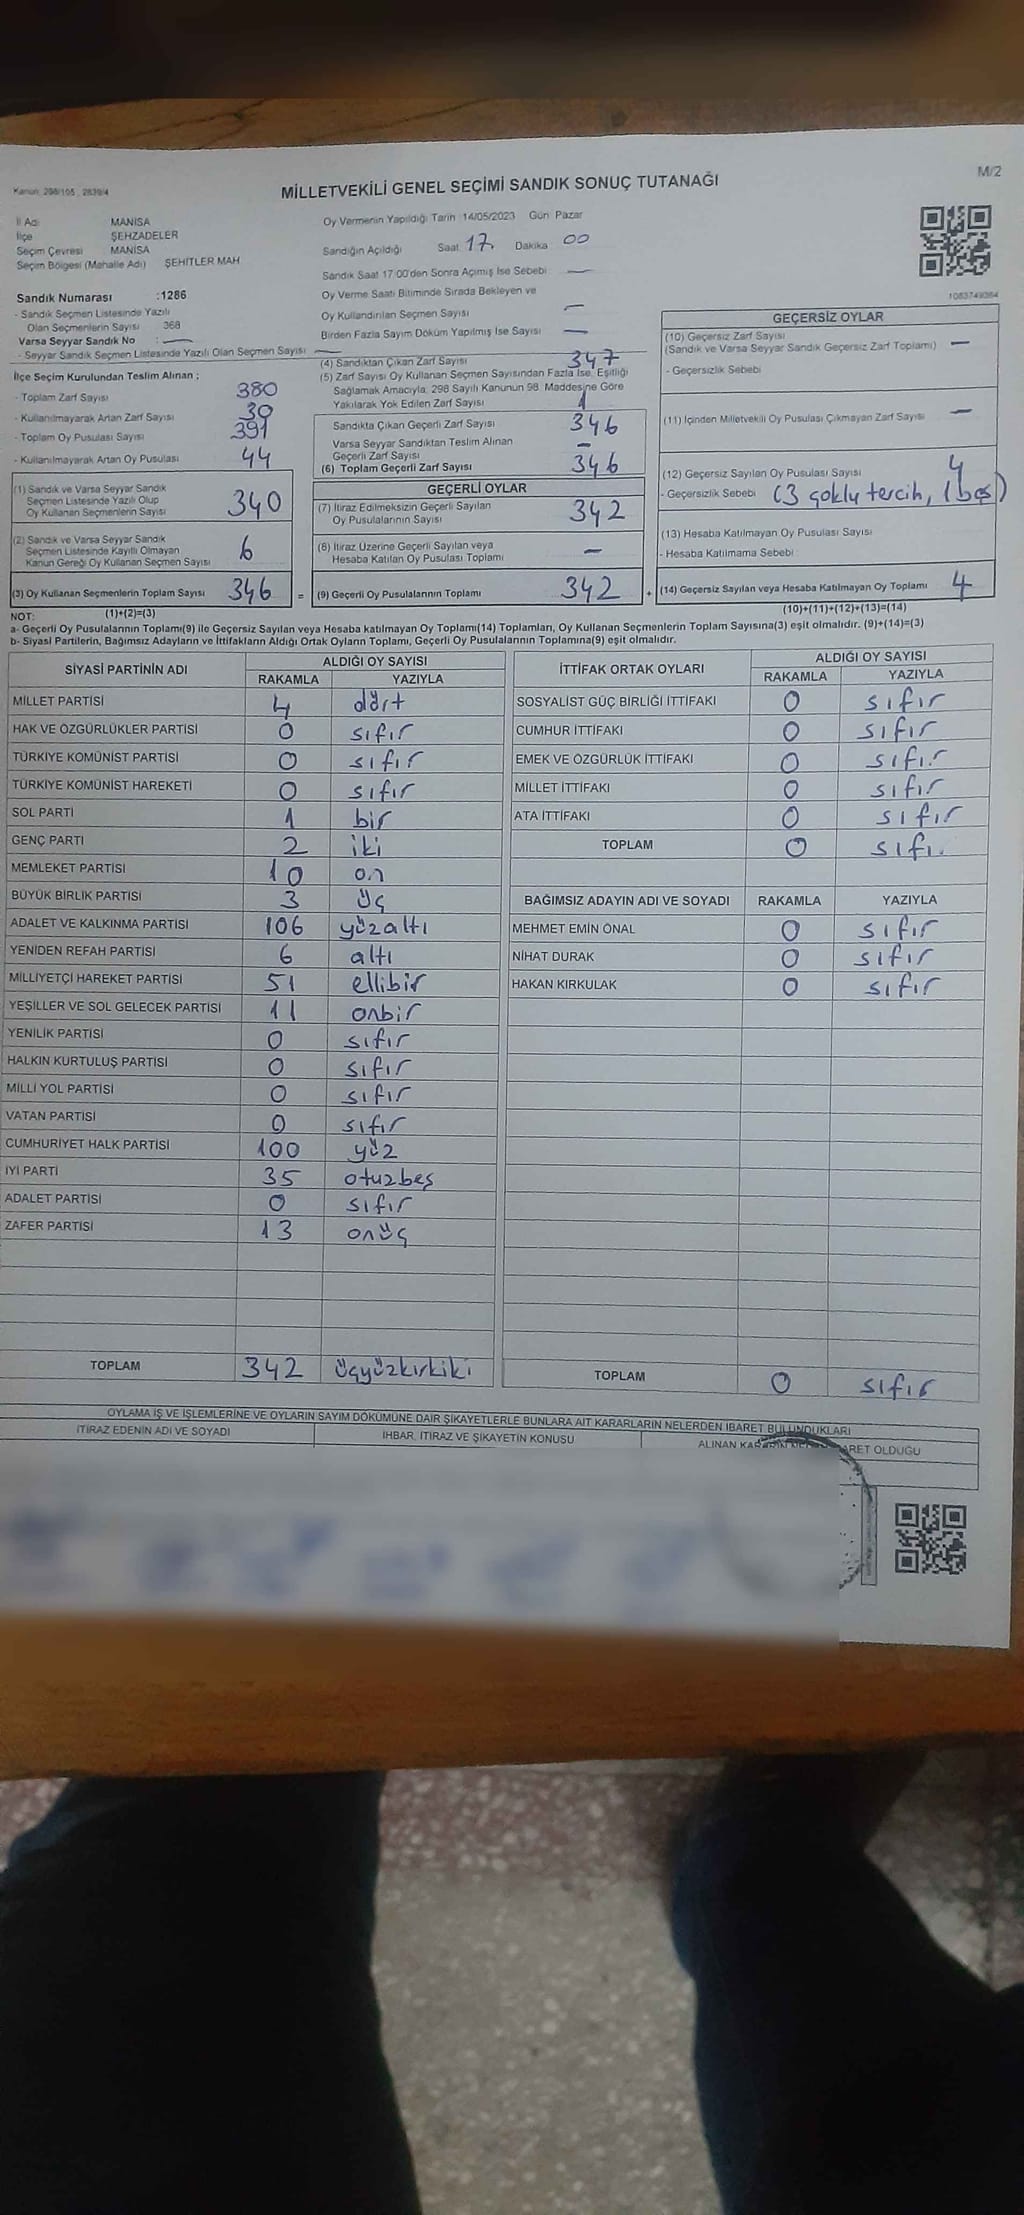 M/2
Kanun: 298/105, 2839/4
MİLLETVEKİLİ GENEL SEÇİMİ SANDIK SONUÇ TUTANAĞI
İl Adı MANİSA
İlçe ŞEHZADELER
Seçim Çevresi MANİSA
Seçim Bölgesi (Mahalle Adı) ŞEHİTLER MAH
Sandık Numarası :1286
- Sandık Seçmen Listesinde Yazılı
Olan Seçmenlerin Sayısı 368
Varsa Seyyar Sandık No : —
- Seyyar Sandık Seçmen Listesinde Yazılı Olan Seçmen Sayısı —
Oy Vermenin Yapıldığı Tarih :14/05/2023 Gün: Pazar
Sandığın Açıldığı Saat 17. Dakika 00
Sandık Saat 17:00'den Sonra Açımış İse Sebebi: —
Oy Verme Saati Bitiminde Sırada Bekleyen ve
Oy Kullandırılan Seçmen Sayısı —
Birden Fazla Sayım Döküm Yapılmış İse Sayısı —
1083749364
İlçe Seçim Kurulundan Teslim Alınan ;
- Toplam Zarf Sayısı 380
- Kullanılmayarak Artan Zarf Sayısı
- Toplam Oy Pusulası Sayısı 391
- Kullanılmayarak Artan Oy Pusulası 44
(1) Sandık ve Varsa Seyyar Sandık
Seçmen Listesinde Yazılı Olup
Oy Kullanan Seçmenlerin Sayısı 340
(2) Sandık ve Varsa Seyyar Sandık
Seçmen Listesinde Kayıtlı Olmayan
Kanun Gereği Oy Kullanan Seçmen Sayısı 6
(3) Oy Kullanan Seçmenlerin Toplam Sayısı 346 =
(4) Sandıktan Çıkan Zarf Sayısı 347
(5) Zarf Sayısı Oy Kullanan Seçmen Sayısından Fazla İse, Eşitliği
Sağlamak Amacıyla, 298 Sayılı Kanunun 98. Maddesine Göre
Yakılarak Yok Edilen Zarf Sayısı 1
Sandıkta Çıkan Geçerli Zarf Sayısı 346
Varsa Seyyar Sandıktan Teslim Alınan
Geçerli Zarf Sayısı —
(6) Toplam Geçerli Zarf Sayısı 346
GEÇERLİ OYLAR
(7) İtiraz Edilmeksizin Geçerli Sayılan
Oy Pusulalarının Sayısı 342
(8) İtiraz Üzerine Geçerli Sayılan veya
Hesaba Katılan Oy Pusulası Toplamı —
(9) Geçerli Oy Pusulalarının Toplamı 342 +
GEÇERSİZ OYLAR
(10) Geçersiz Zarf Sayısı
(Sandık ve Varsa Seyyar Sandık Geçersiz Zarf Toplamı) —
- Geçersizlik Sebebi
(11) İçinden Milletvekili Oy Pusulası Çıkmayan Zarf Sayısı —
(12) Geçersiz Sayılan Oy Pusulası Sayısı 4
- Geçersizlik Sebebi (3 çoklu tercih, 1 boş)
(13) Hesaba Katılmayan Oy Pusulası Sayısı
- Hesaba Katılmama Sebebi
(14) Geçersiz Sayılan veya Hesaba Katılmayan Oy Toplamı 4
NOT: (1)+(2)=(3) (10)+(11)+(12)+(13)=(14)
a- Geçerli Oy Pusulalarının Toplamı(9) ile Geçersiz Sayılan veya Hesaba katılmayan Oy Toplamı(14) Toplamları, Oy Kullanan Seçmenlerin Toplam Sayısına(3) eşit olmalıdır. (9)+(14)=(3)
b- Siyasi Partilerin, Bağımsız Adayların ve İttifakların Aldığı Ortak Oyların Toplamı, Geçerli Oy Pusulalarının Toplamına(9) eşit olmalıdır.
SİYASİ PARTİNİN ADI ALDIĞI OY SAYISI
RAKAMLA YAZIYLA
MİLLET PARTİSİ 4 dört
HAK VE ÖZGÜRLÜKLER PARTİSİ 0 sıfır
TÜRKİYE KOMÜNİST PARTİSİ 0 sıfır
TÜRKİYE KOMÜNİST HAREKETİ 0 sıfır
SOL PARTİ 1 bir
GENÇ PARTİ 2 iki
MEMLEKET PARTİSİ 10 on
BÜYÜK BİRLİK PARTİSİ 3 üç
ADALET VE KALKINMA PARTİSİ 106 yüzaltı
YENİDEN REFAH PARTİSİ 6 altı
MİLLİYETÇİ HAREKET PARTİSİ 51 ellibir
YEŞİLLER VE SOL GELECEK PARTİSİ 11 onbir
YENİLİK PARTİSİ 0 sıfır
HALKIN KURTULUŞ PARTİSİ 0 sıfır
MİLLİ YOL PARTİSİ 0 sıfır
VATAN PARTİSİ 0 sıfır
CUMHURİYET HALK PARTİSİ 100 yüz
İYİ PARTİ 35 otuzbeş
ADALET PARTİSİ 0 sıfır
ZAFER PARTİSİ 13 onüç
TOPLAM 342 üçyüzkırkiki
İTTİFAK ORTAK OYLARI ALDIĞI OY SAYISI
RAKAMLA YAZIYLA
SOSYALİST GÜÇ BİRLİĞİ İTTİFAKI 0 sıfır
CUMHUR İTTİFAKI 0 sıfır
EMEK VE ÖZGÜRLÜK İTTİFAKI 0 sıfır
MİLLET İTTİFAKI 0 sıfır
ATA İTTİFAKI 0 sıfır
TOPLAM 0 sıfır
BAĞIMSIZ ADAYIN ADI VE SOYADI RAKAMLA YAZIYLA
MEHMET EMİN ÖNAL 0 sıfır
NİHAT DURAK 0 sıfır
HAKAN KIRKULAK 0 sıfır
TOPLAM 0 sıfır
OYLAMA İŞ VE İŞLEMLERİNE VE OYLARIN SAYIM DÖKÜMÜNE DAİR ŞİKAYETLERLE BUNLARA AİT KARARLARIN NELERDEN İBARET BULUNDUKLARI
İTİRAZ EDENİN ADI VE SOYADI İHBAR, İTİRAZ VE ŞİKAYETİN KONUSU ALINAN OLDUĞU